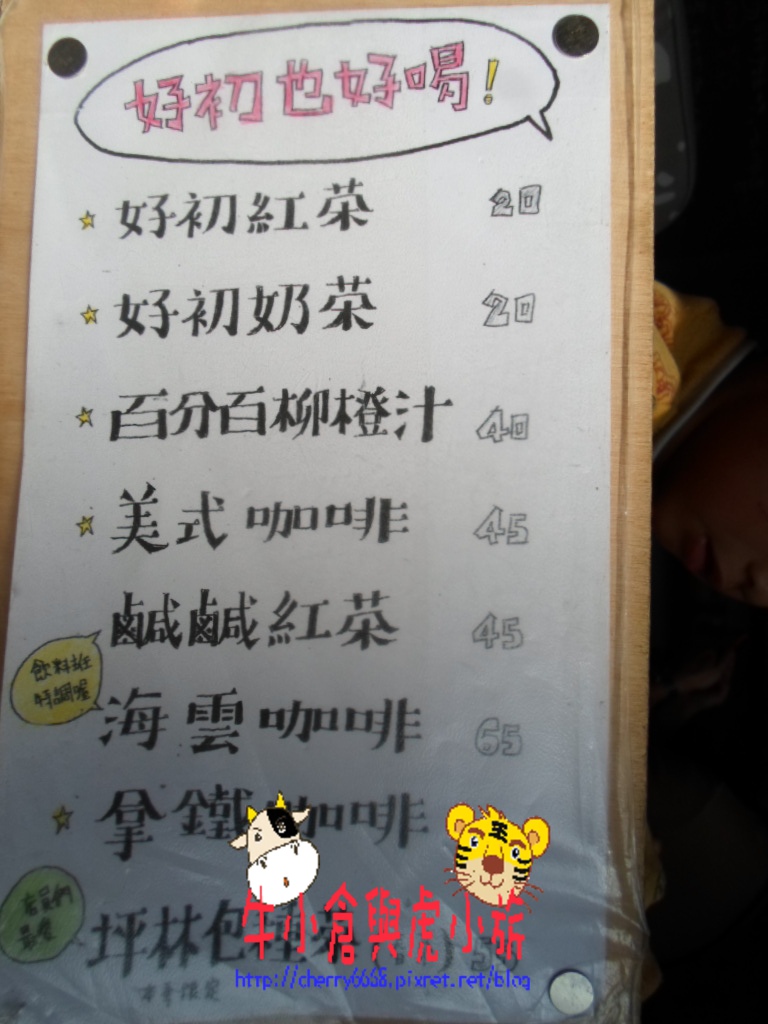 好初也好喝!
好初紅茶 20
好初奶茶 20
百分百柳橙汁 40
美式咖啡 45
鹹鹹紅茶 45
飲料班
特調喔
海雲咖啡 65
拿鐵咖啡
店員們
最愛
坪林包種茶
牛小倉與虎小旅
http://cherry6668.pixnet.net/blog
本季限定